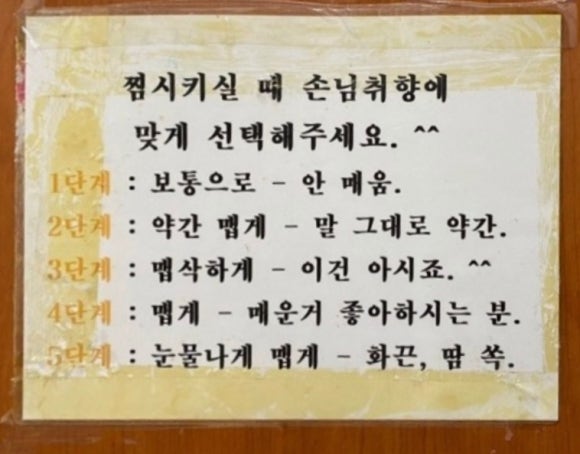 찜시키실 때 손님취향에
맞게 선택해주세요. ^^
1단계 : 보통으로 - 안 매움.
2단계 : 약간 맵게 - 말 그대로 약간.
3단계 : 맵삭하게 - 이건 아시죠. ^^
4단계 : 맵게 - 매운거 좋아하시는 분.
5단계 : 눈물나게 맵게 - 화끈, 땀 쏙.